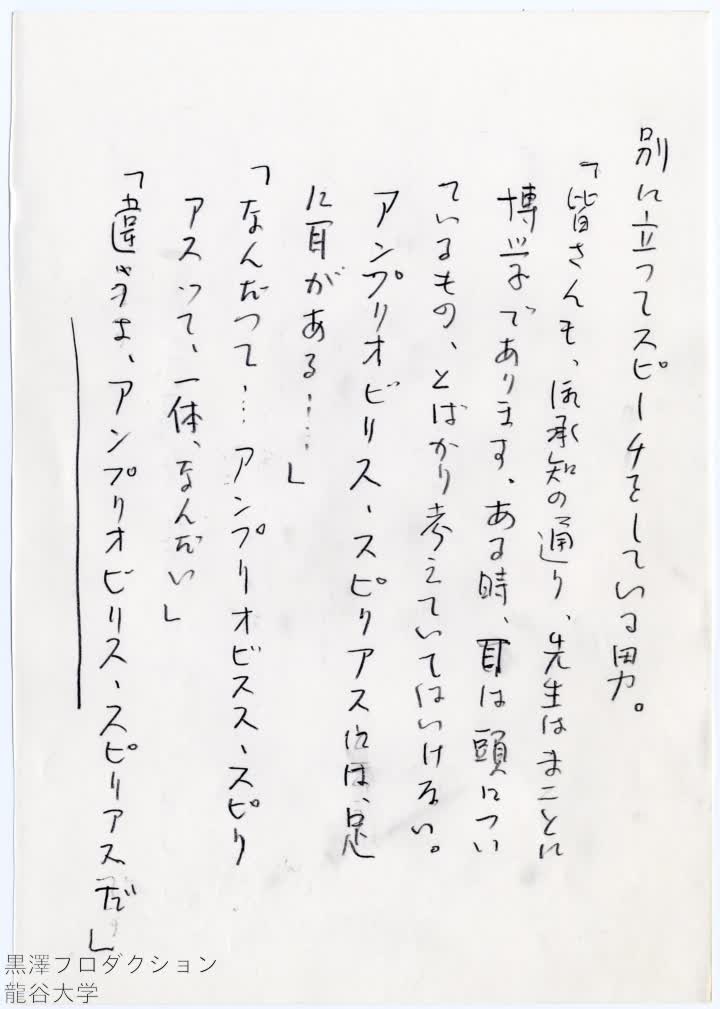 別に立ってスピーチをしている男。
「皆さんも、御承知の通り、先生はまことに
博学であります、ある時、耳は頭につい
ているもの、とばかり考えていてはいけない。
アンプリオビリス、スピリアスには、足
に耳がある……」
「なんだって…アンプリオビスス、スピリ
アスって、一体、なんだい」
「違うよ、アンプリオビリス、スピリアスだ」
黒澤プロダクション
龍谷大学